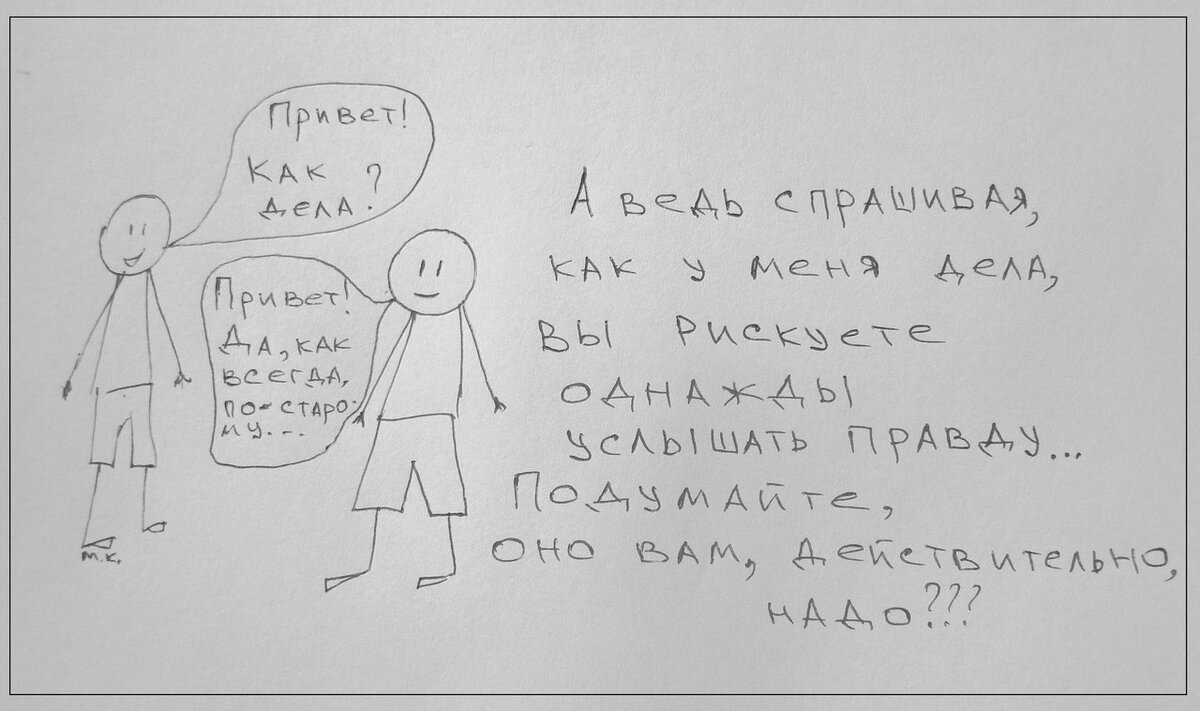 Привет!
КАК
ДЕЛА?
Привет!
ДА, КАК
ВСЕГДА,
ПО-СТАРО-
МУ...
М.К.
А ВЕДЬ СПРАШИВАЯ,
КАК У МЕНЯ ДЕЛА,
ВЫ РИСКУЕТЕ
ОДНАЖДЫ
УСЛЫШАТЬ ПРАВДУ...
ПОДУМАЙТЕ,
ОНО ВАМ, ДЕЙСТВИТЕЛЬНО,
НАДО???